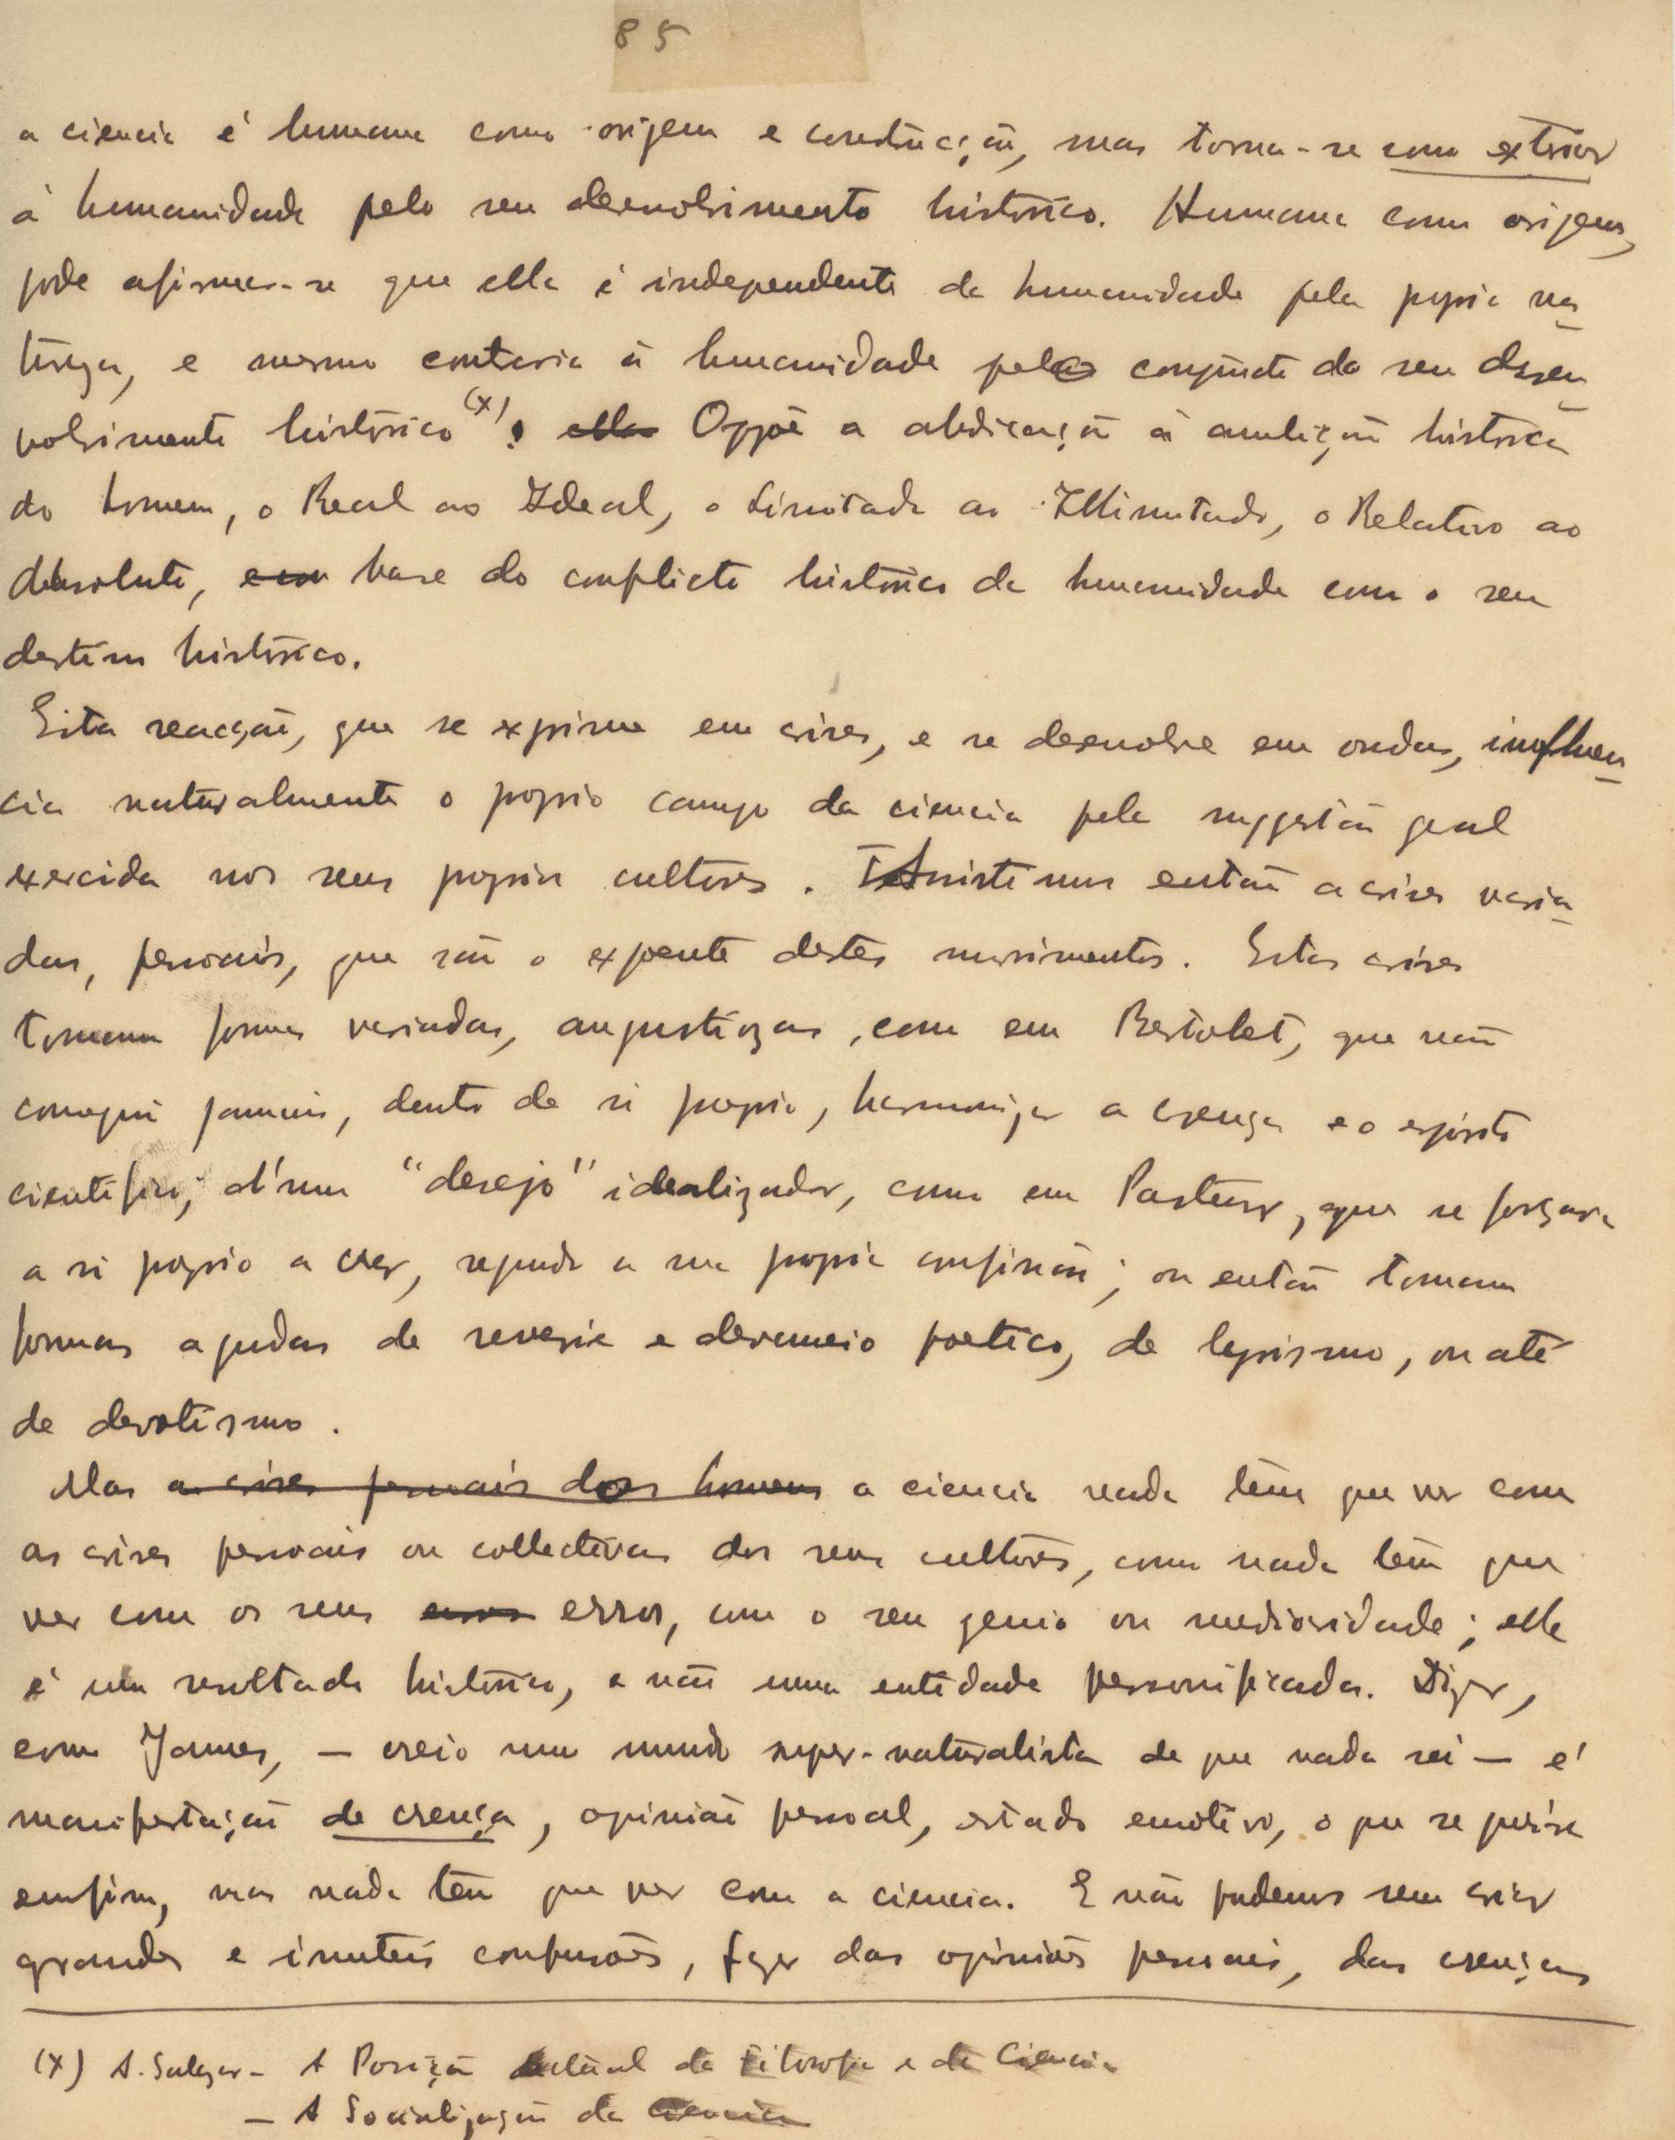 85
a ciencia é humana como origem e construcção, mas torna-se como exterior
á humanidade pelo seu desenvolvimento historico. Humana como origem,
pode afirmar-se que ella é independente da humanidade pela propria na-
tureza, e mesmo contraria á humanidade pelo conjuncto do seu desen-
volvimento historico (x). ella Oppõe a abdicação á ambição historica
do homem, o Real ao Ideal, o Limitado ao Illimitado, o Relativo ao
Absoluto, base do conflicto historico da humanidade com o seu
destino historico.
Esta reacção, que se exprime em crises, e se desenvolve em ondas, influen-
cia naturalmente o proprio campo da ciencia pela suggestão geral
exercida nos seus proprios cultores. Assistimos então a crises varia-
das, pessoais, que são o expoente destes movimentos. Estas crises
tomam formas variadas, angustiozas, como em Bertolet, que não
conseguiu jamais, dentro de si proprio, harmonizar a crença e o espirito
cientifico; d'um "desejo" idealizador, como em Pasteur, que se forçava
a si proprio a crer, segundo a sua propria confissão; ou então tomam
formas agudas de reverie e devaneio poetico, de lyrismo, ou até
de devotismo.
Mas as crises pessoais dos homens a ciencia nada tem que ver com
as crises pessoais ou collectivas dos seus cultores, como nada tem que
ver com os seus erros erros, com o seu genio ou mediocridade; ella
é um resultado historico, e não uma entidade personificada. Dizer,
com James, — creio num mundo super-naturalista de que nada sei — é
manifestação de crença, opinião pessoal, estado emotivo, o que se quizer
emfim, mas nada tem que ver com a ciencia. E não podemos sem criar
grandes e inuteis confusões, fazer das opiniões pessoais, das crenças
(x) A. Salazar - A Posição actual da Filosofia e da Ciencia
— A Socialização da Ciencia